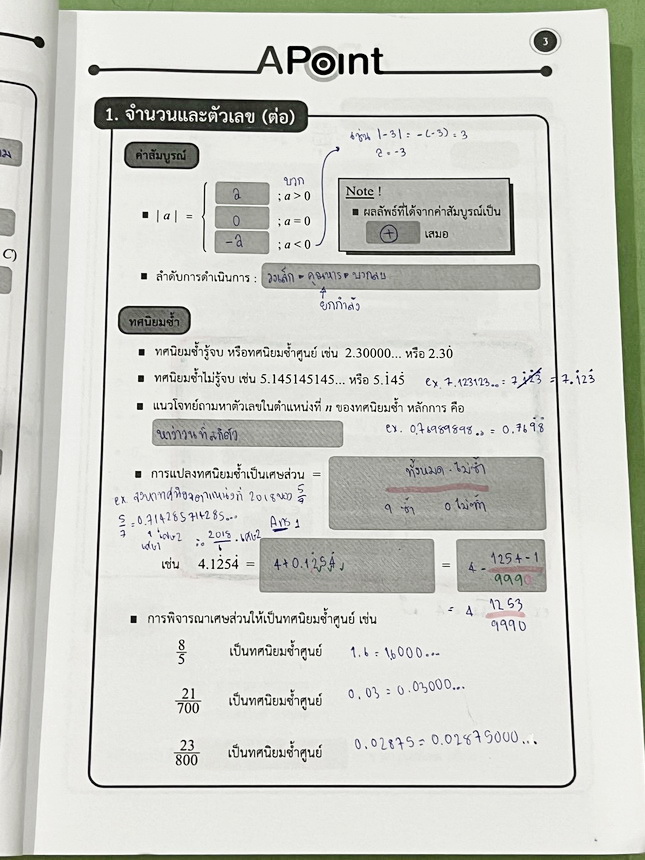 3
APoint
1. จำนวนและตัวเลข (ต่อ)
ค่าสัมบูรณ์
เช่น |-3| = -(-3) = 3
a = -3
บวก
a ; a > 0
▪ | a | = 0 ; a = 0
-a ; a < 0
Note !
▪ ผลลัพธ์ที่ได้จากค่าสัมบูรณ์เป็น
+ เสมอ
▪ ลำดับการดำเนินการ : วงเล็บ คูณหาร บวกลบ
ยกกำลัง
ทศนิยมซ้ำ
▪ ทศนิยมซ้ำรู้จบ หรือทศนิยมซ้ำศูนย์ เช่น 2.30000... หรือ 2.30̇
▪ ทศนิยมซ้ำไม่รู้จบ เช่น 5.145145145... หรือ 5.1̇45̇ ex. 7.123123... = 7.1̇23̇ = 7.1̇23̇
▪ แนวโจทย์ถามหาตัวเลขในตำแหน่งที่ n ของทศนิยมซ้ำ หลักการ คือ
ex. 0.76989898... = 0.769̇8̇
▪ การแปลงทศนิยมซ้ำเป็นเศษส่วน = ทั้งหมด - ไม่ซ้ำ
9 ซ้ำ 0 ไม่ซ้ำ
ex 2018 ของ 5/7
5/7 = 0.714285714285...
เศษ1 เศษ2 ∴ 2018/6 เศษ2 Ans 1
เช่น 4.1̇254̇ = 4+0.1254 = 4 1254-1/9990
= 4 1253/9990
▪ การพิจารณาเศษส่วนให้เป็นทศนิยมซ้ำศูนย์ เช่น
8/5 เป็นทศนิยมซ้ำศูนย์ 1.6 = 1.6000...
21/700 เป็นทศนิยมซ้ำศูนย์ 0.03 = 0.03000...
23/800 เป็นทศนิยมซ้ำศูนย์ 0.02875 = 0.02875000...